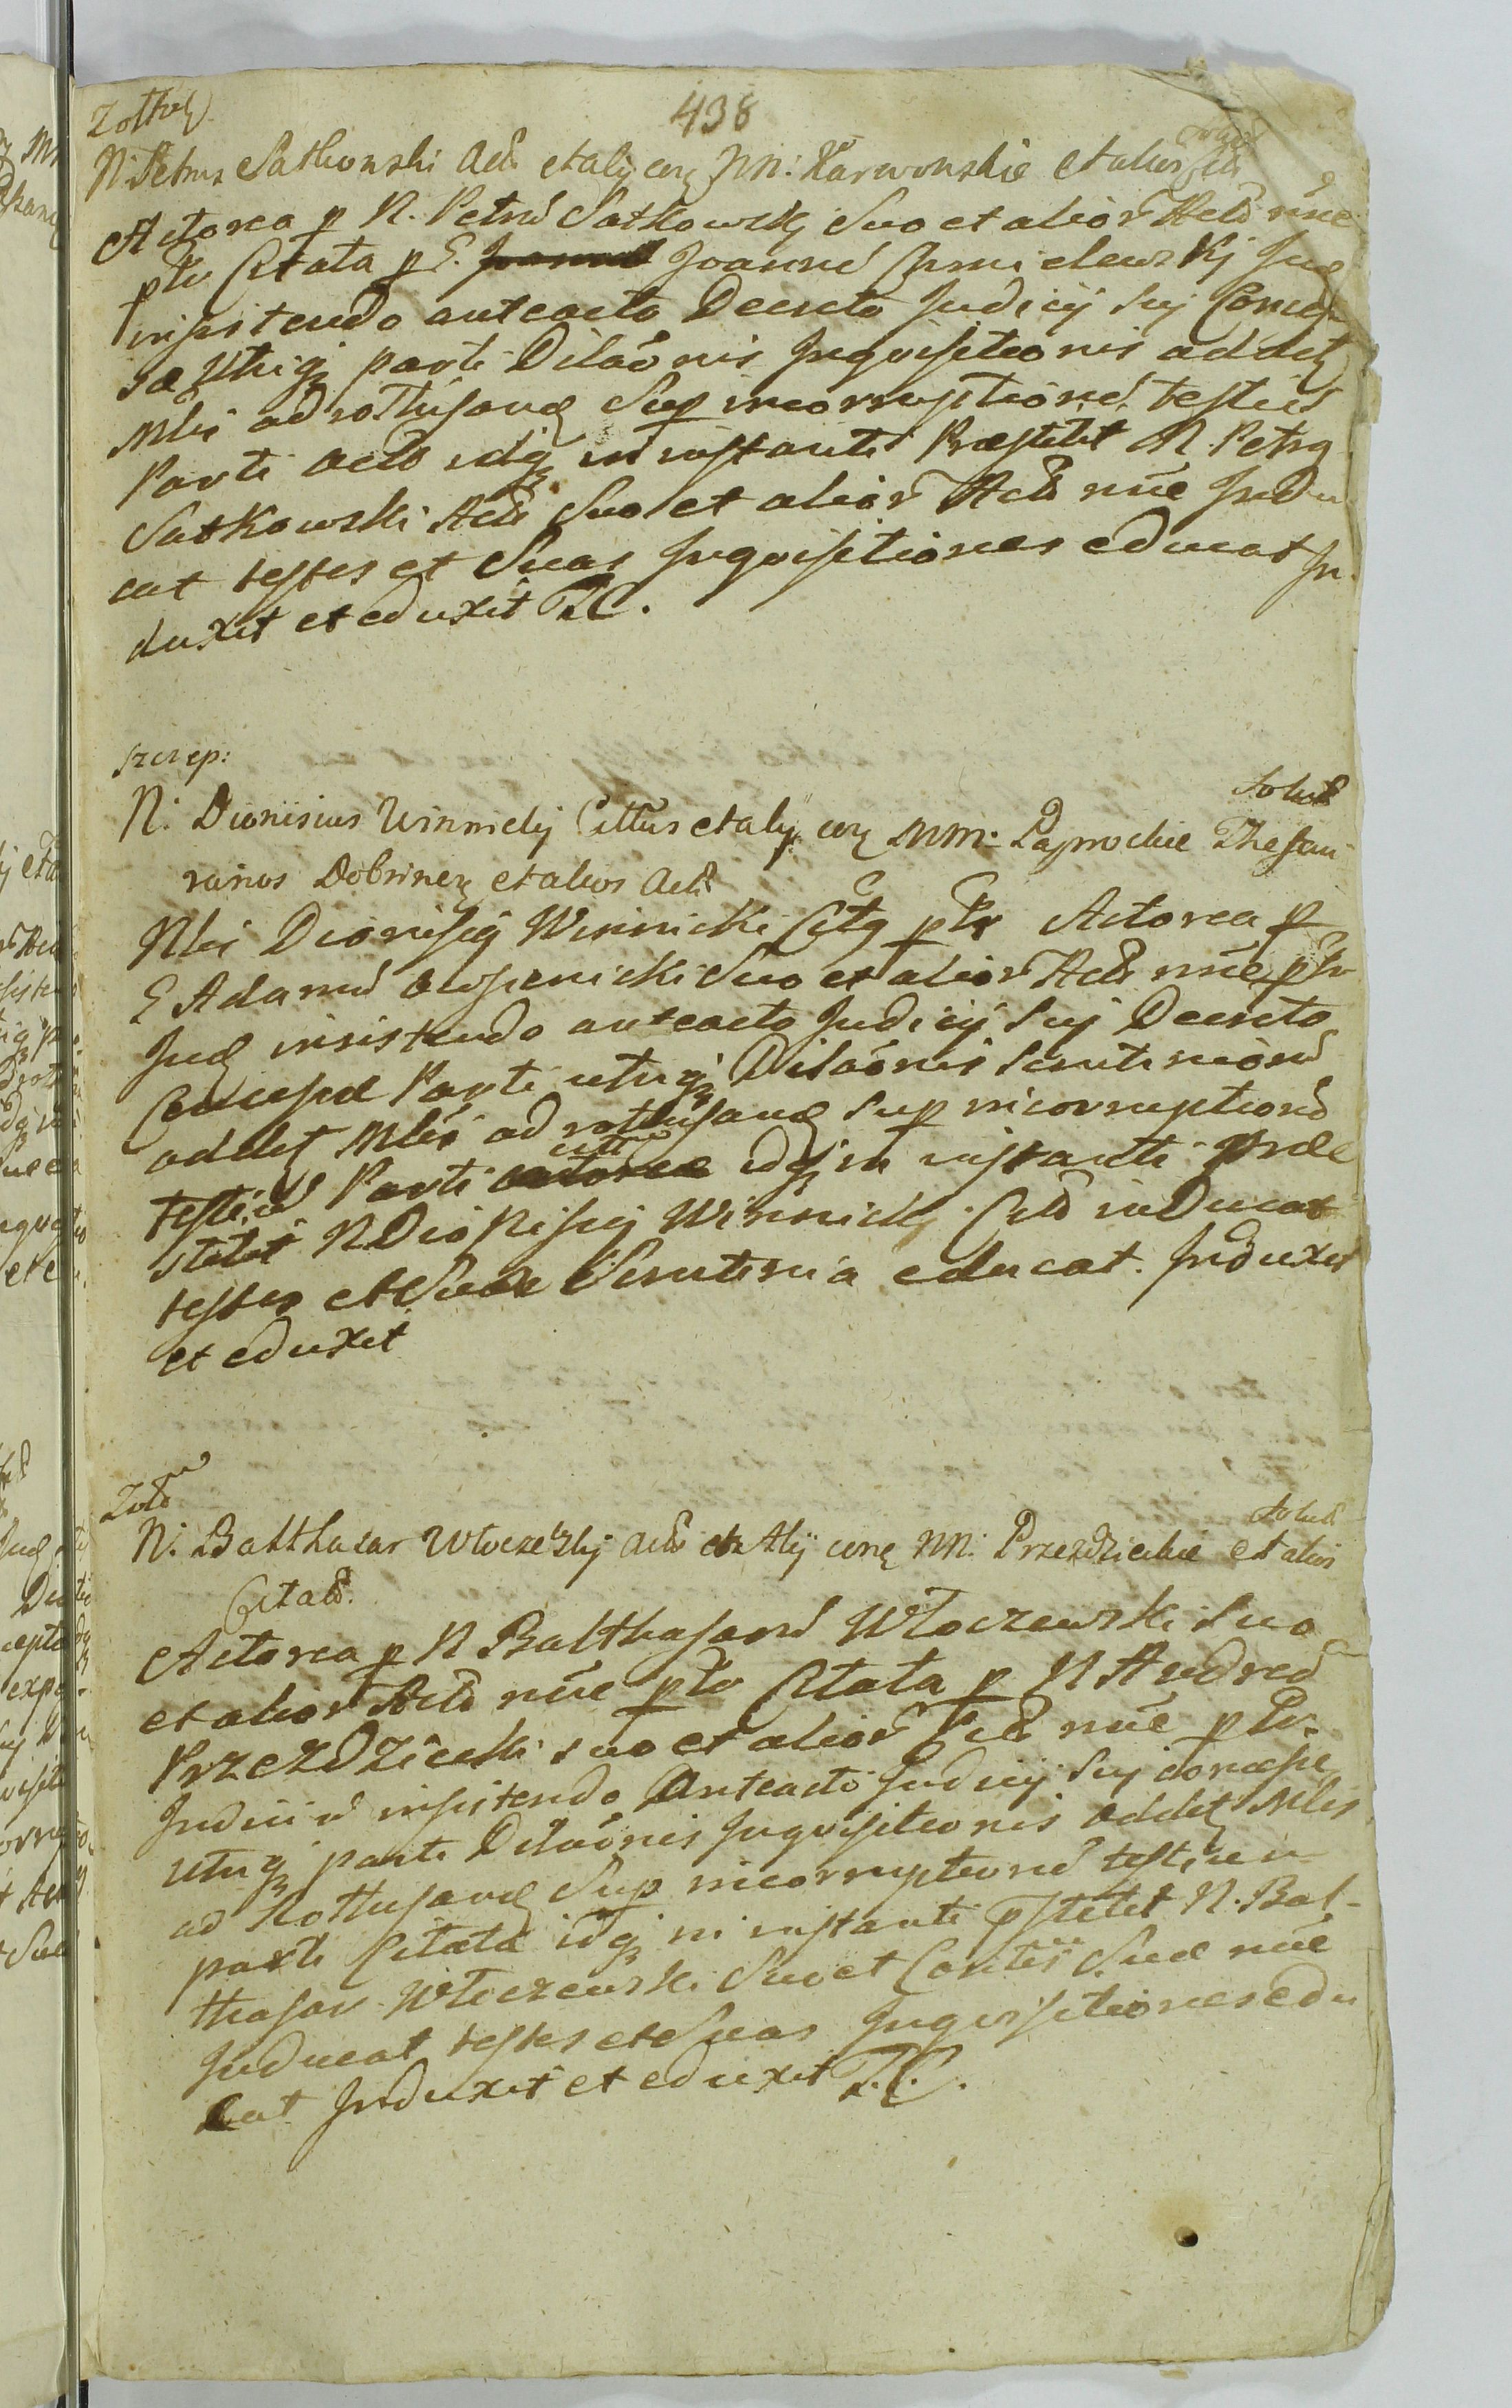 438
Zołtow
N. Petrus Satkowski Act. et alij cong NN: Karwowskie et alios Citt
Solut
Actorea p N. Petrũ Satkowskj Suo et alior Actõ nne
ptẽ Citata p G. Joannẽ Chmielewskj Jud
insistendo anteacto Decreto Judicij Sui Conces
sæ Utriq; parti Dilaõnis Inqvisitionis addit
Mlis ad rothisand Sup incorruptionẽ testiũ
Parti Actõ idq; in instanti Præstitit N. Petrg
Satkowski Act Suo et alior Actõ nne Indu
cat testes et Suas Inqvisitiones educat In
duxit et eduxit T.C.
szczep:
Solut
N: Dionisius Winnickj Cittus et alij cong MM: Paprockie Thesau
rarios Dobrinen et alios Act
Nlis Dionisig Winnicki Cittg ptr Actorea p
G Adamũ Suo et alior Actõ nne ptr
Jud insistendo anteacto Judicij Sui Decreto
Concessæ Parti utriq; Dilaõnis Scrutiniorũ
addit Mlis ad rothisand Sup incorruptionẽ
testiũ Parti citt idq; in instanti Præ
stitit N Dionisig Winnickj Citt inducat
testes et Sua Scrutinia educat. Induxit
et eduxit
Zołt
Solut
N: Balthasar Włoczewskj Act et Alij cong NN. Przezdzieckie et alios
Citatt.
Actorea p N Balthasarũ Włoczewski Suo
et alior Actõ nne ptr Citata p N Andreã
Przezdziecki suo et alior Citt nne ptr
Judiciũ insistendo Anteacto Judicij Sui concessæ
utriq; parti Dilaõnis Inqvisitionis addit Mlis
ad Rothisand Sup incorruptionẽ testium
parti Citatæ idq; in instanti pstitit N. Bal-
thasar Włoczewski Suo et Contis Suæ nne
Inducat testes et Suas Inqvisitiones edu
cat Induxit et eduxit T.C.